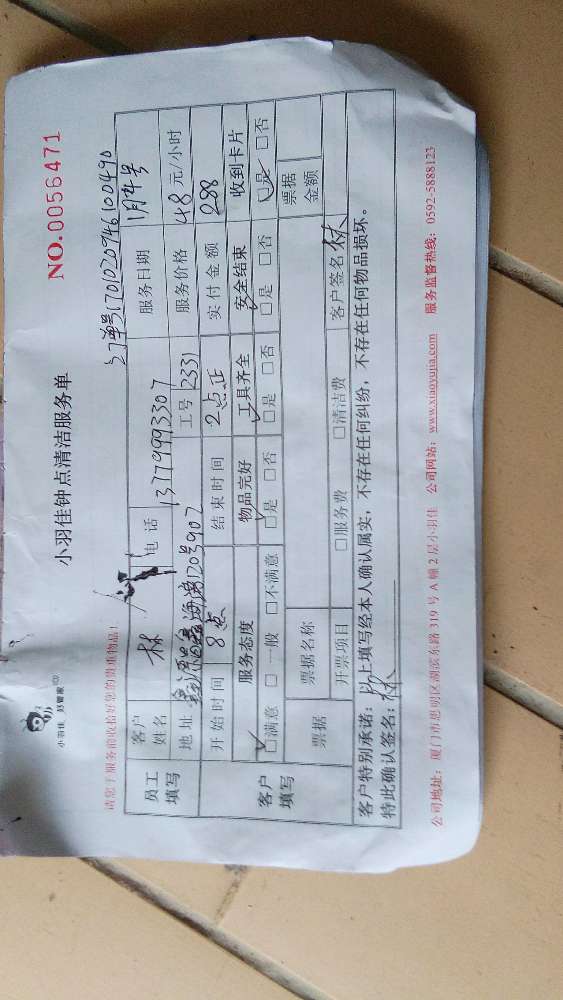 小羽佳.好管家
NO.0056471
小羽佳钟点清洁服务单
请您于服务前收拾好您的贵重物品!
订单号17010209746100490
员工填写
客户姓名 林 电话 13779993307 服务日期 1月4号
地址 海湾120号902 工号 2331 服务价格 48 元/小时
开始时间 8点 结束时间 2点正 实付金额 288
客户填写
服务态度 物品完好 工具齐全 安全结束 收到卡片
☑满意 □一般 □不满意 □是 □否 □是 □否 □是 □否 □是 □否
票据 票据名称 票据金额
开票项目 □服务费 □清洁费 客户签名 林
客户特别承诺:以上填写经本人确认属实,不存在任何纠纷,不存在任何物品损坏。
特此确认签名:林
公司地址:厦门市思明区湖滨东路 319 号 A 幢 2 层小羽佳 公司网站:www.xiaoyujia.com 服务监督热线:0592-5888123